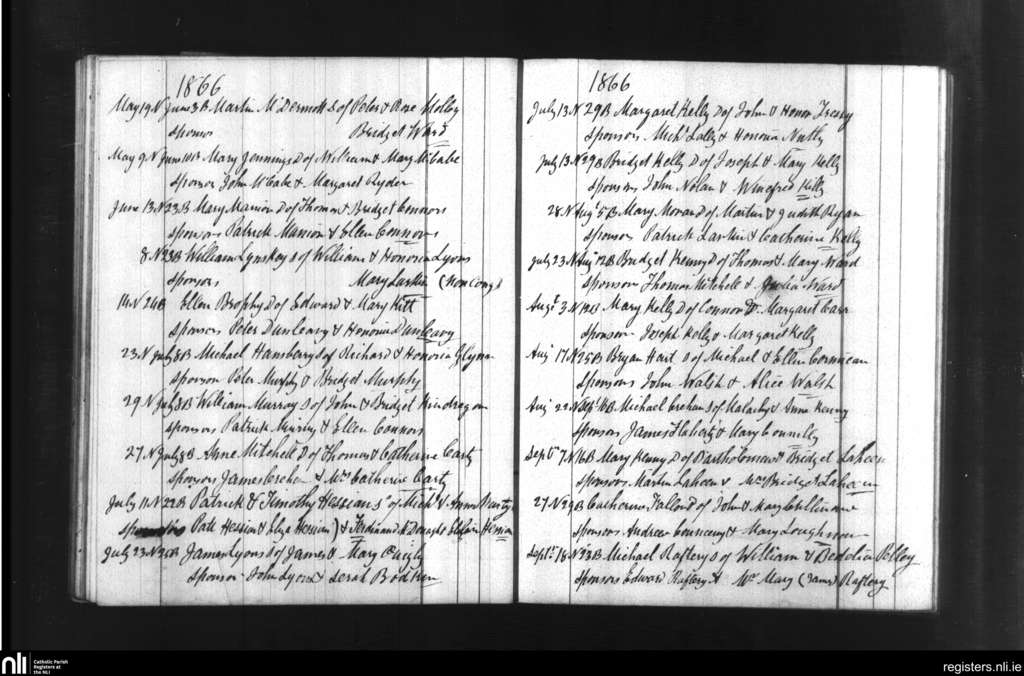 1866
May 19 N June 3 B Martin McDermott S of Peter & Rose Molloy
Sponsors Bridget Ward
May 9 N June 10 B Mary Jennings D of William & Mary McCabe
Sponsors John McCabe & Margaret Ryder
June 13 N 23 B Mary Mannion D of Thomas & Bridget Connors
Sponsors Patrick Mannion & Ellen Connors
8 N 23 B William Lynskey S of William & Honoria Lyons
Sponsors Mary Larkin
14 N 24 B Ellen Brophy D of Edward & Mary Kitt
Sponsors Peter Dunleavy & Honoria Dunleavy
23 N July 8 B Michael Hansbery S of Richard & Honoria Glynn
Sponsors Peter Murphy & Bridget Murphy
29 N July 8 B William Murray S of John & Bridget
Sponsors Patrick & Ellen Connors
27 N July 8 B Anne Mitchell D of Thomas & Catherine Carty
Sponsors James & Mrs Catherine Carty
July 11 N 22 B Patrick & Timothy Hession Ss of Mich &
Sponsors Patt Hession & Eliza Hession & Ferdinand McDonagh & Hession
July 23 N B James Lyons S of James & Mary
Sponsors John Lyons & Sarah Bodkin
1866
July 13 N 29 B Margaret Kelly D of John & Honor Treacy
Sponsors Michl Lally & Honoria Nutly
July 13 N 29 B Bridget Kelly D of Joseph & Mary Kelly
Sponsors John Nolan & Winefred Kelly
28 N Augt 5 B Mary Moran D of Martin & Judith Ryan
Sponsors Patrick Larkin & Catherine Kelly
July 23 N Aug 12 B Bridget Kenny D of Thomas & Mary Ward
Sponsors Thomas Mitchell & Julia Ward
Augt 3 N 12 B Mary Kelly D of Connor & Margaret Carr
Sponsors Joseph Kelly & Margaret Kelly
Aug 17 N 25 B Bryan Hart S of Michael & Ellen
Sponsors John Walsh & Alice Walsh
Aug 22 N 16 B Michael Crehan S of Malachy & Anne Kenny
Sponsors James Flaherty & Mary Connolly
Septr 7 N 16 B Mary Kenny D of Bartholomew & Bridget Laheen
Sponsors Martin Laheen & Mrs Bridget Laheen
27 N 29 B Catherine Fallon D of John & Mary Cullinane
Sponsors Andrew & Mary Loughnan
Septr 18 N 23 B Michael Raftery S of William & Bedelia Kelly
Sponsors Edward Raftery & Mrs Mary (James) Raftery
nli
Catholic Parish
Registers at
the NLI
registers.nli.ie